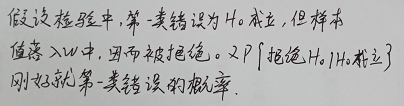 假设检验中,第一类错误为H₀成立,但样本
值落入W中,因而被拒绝。又P{拒绝H₀|H₀成立}
刚好就第一类错误的概率.